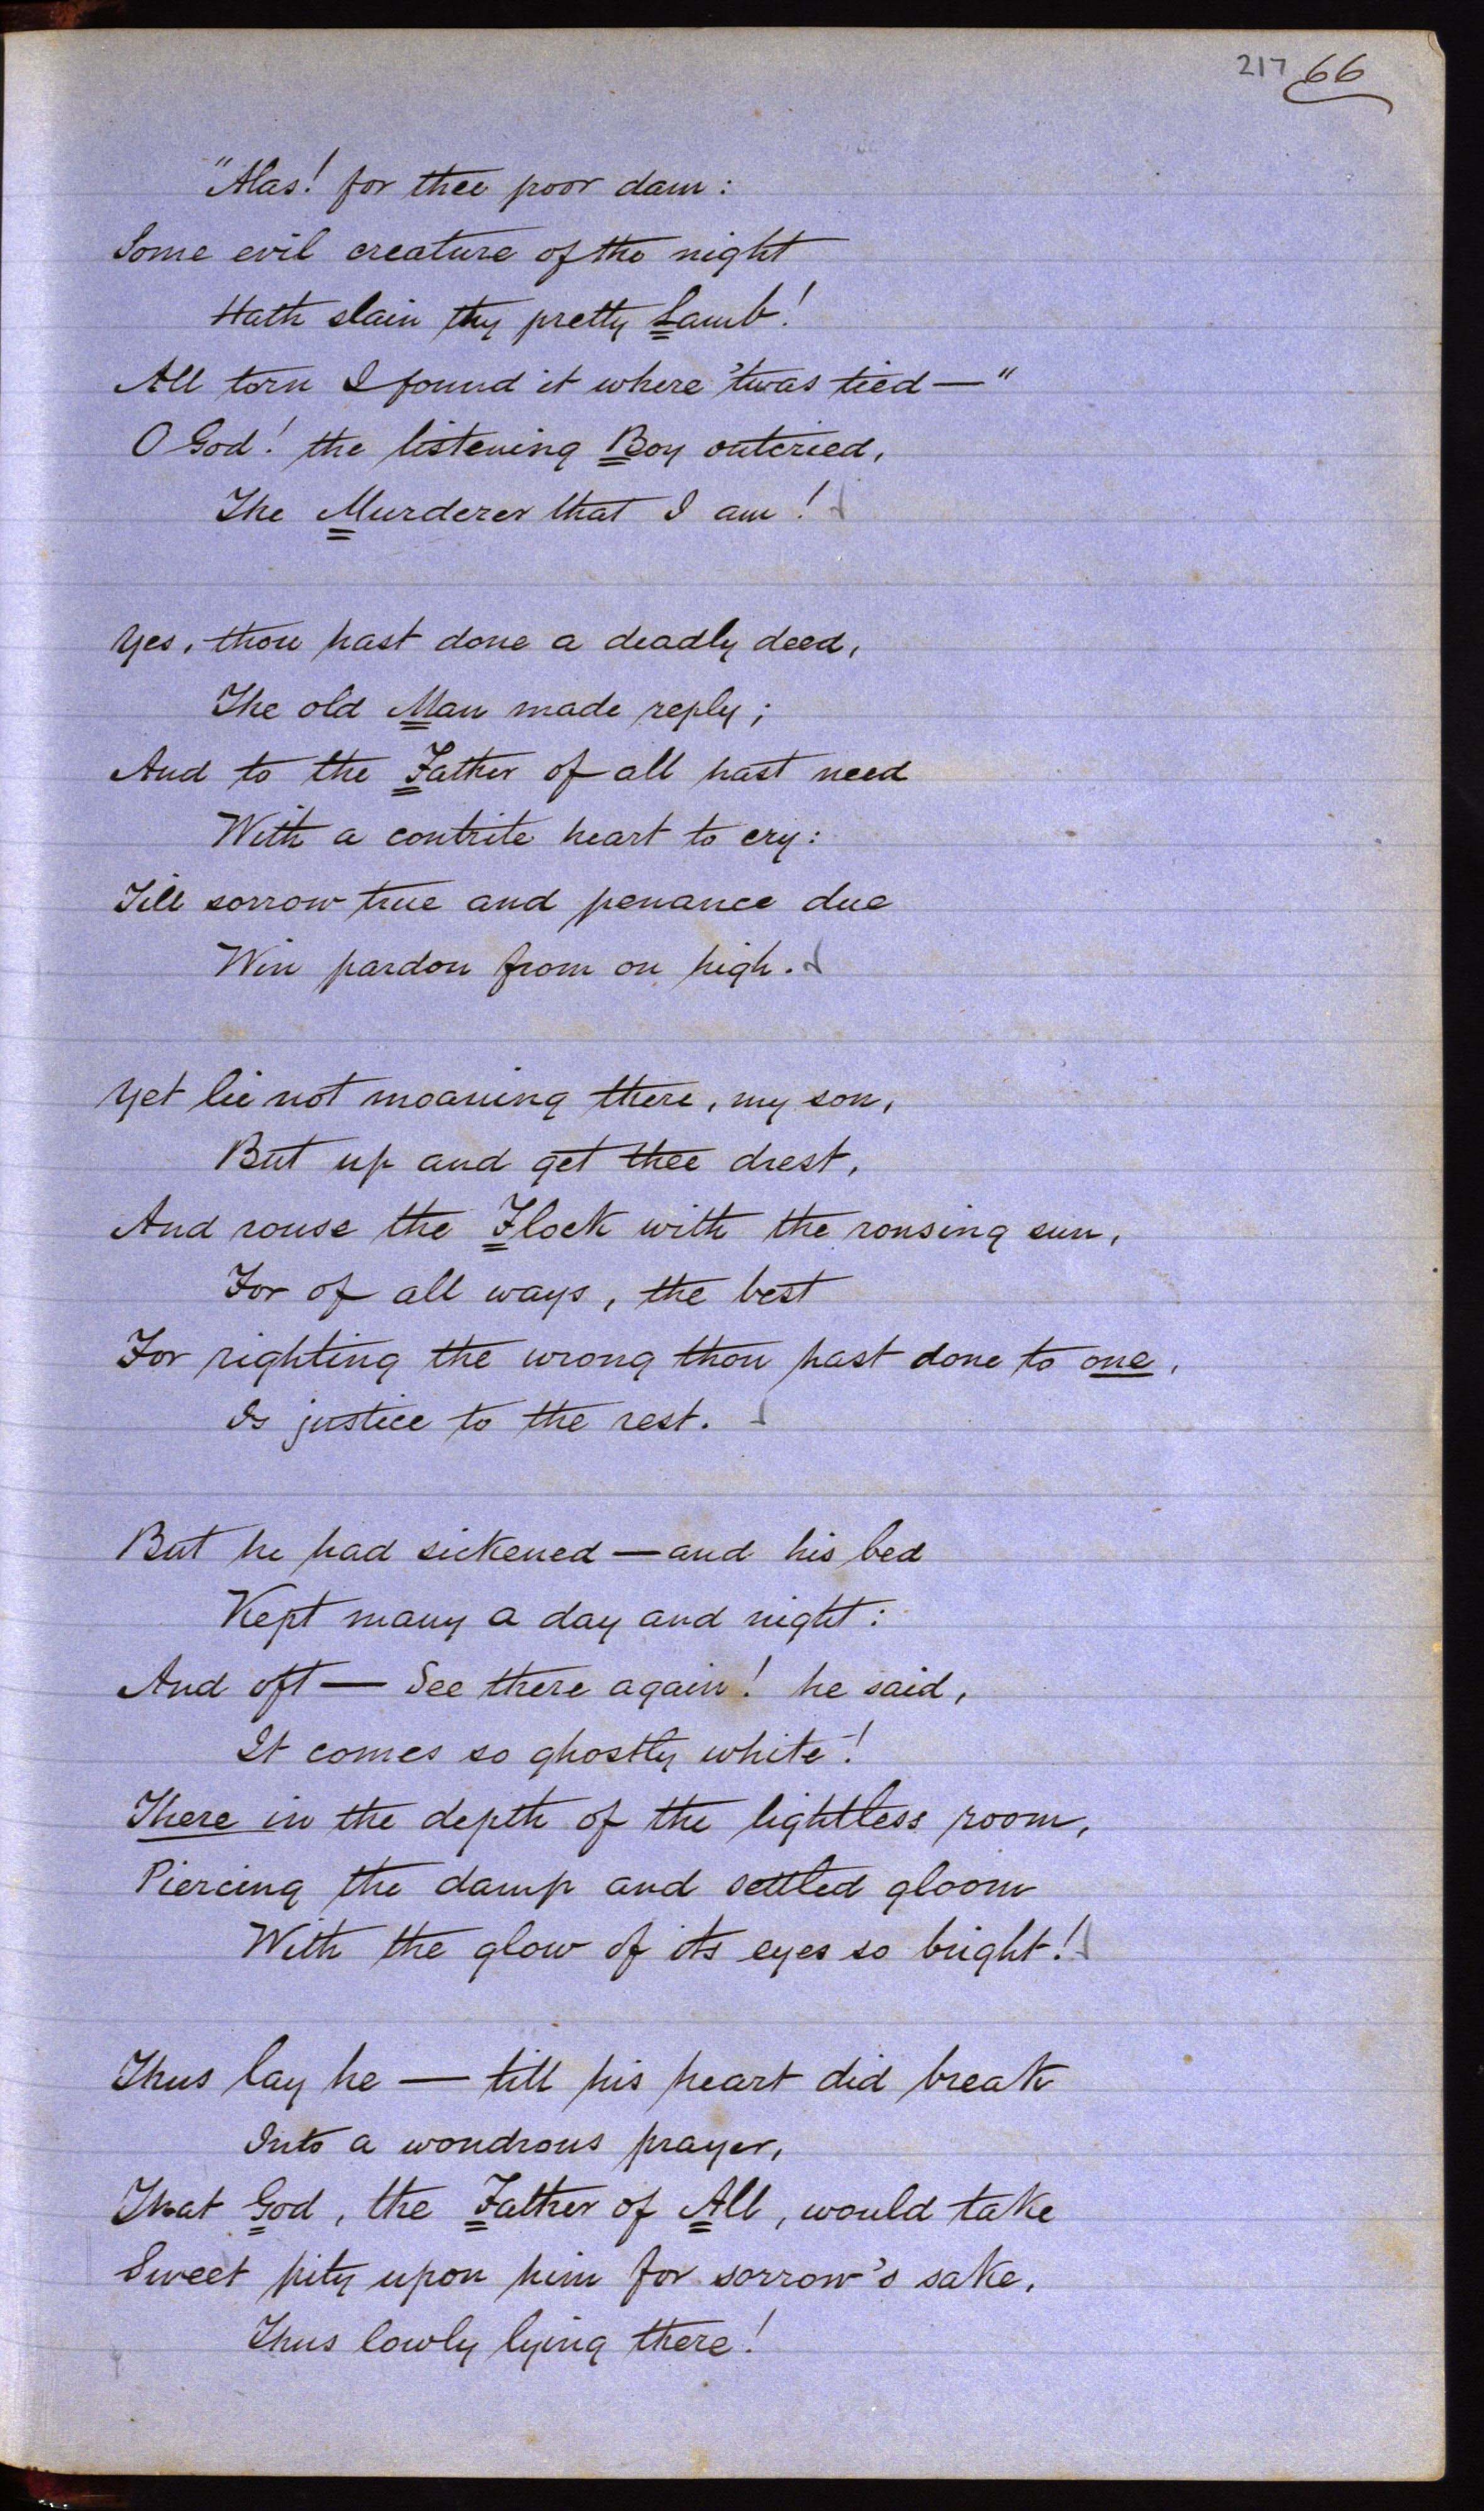 217 66
"Alas! for thee poor dam:
Some evil creature of the night
Hath slain thy pretty Lamb!
All torn I found it where 'twas tied—"
O God! the listening Boy outcried,
The Murderer that I am!
Yes, thou hast done a deadly deed,
The old Man made reply;
And to the Father of all hast need
With a contrite heart to cry:
Till sorrow true and penance due
Win pardon from on high.
Yet lie not moaning there, my son,
But up and get thee drest,
And rouse the Flock with the rousing sun,
For of all ways, the best
For righting the wrong thou hast done to one,
Is justice to the rest.
But he had sickened—and his bed
Kept many a day and night:
And oft— See there again! he said,
It comes so ghostly white!
There in the depth of the lightless room,
Piercing the damp and settled gloom
With the glow of its eyes so bright!
Thus lay he — till his heart did break
Into a wondrous prayer,
That God, the Father of All, would take
Sweet pity upon him for sorrow's sake,
Thus lowly lying there!